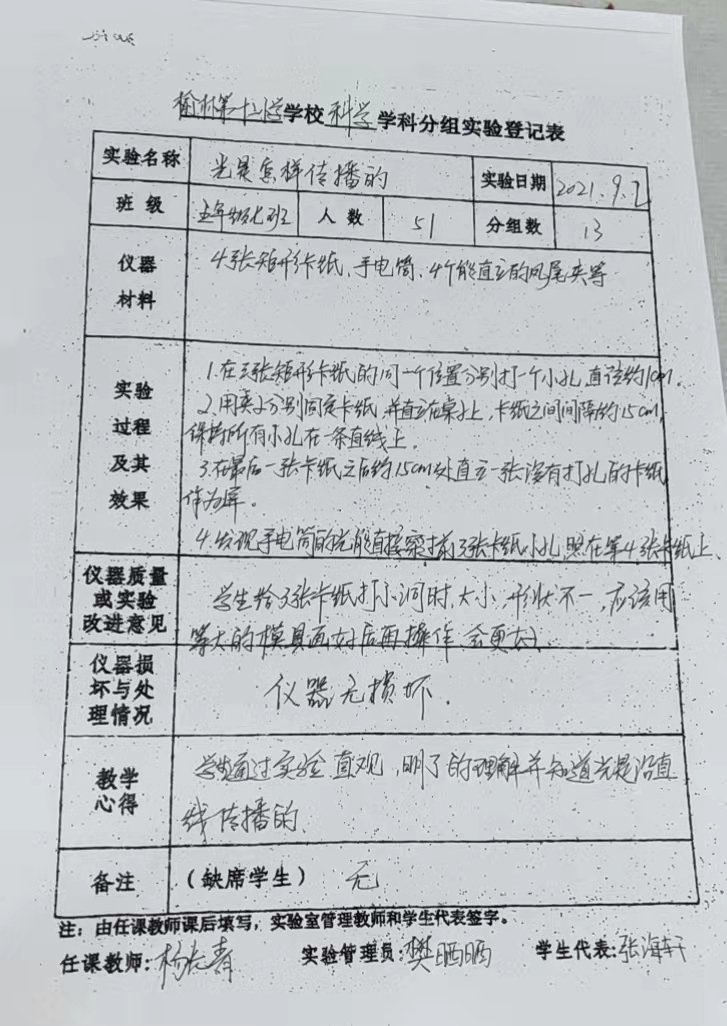 榆林第十二小学学校科学学科分组实验登记表
实验名称 光是怎样传播的 实验日期 2021.9.2
班 级 五年级七班 人 数 51 分组数 13
仪器 4张矩形卡纸、手电筒、4个能直立的凤尾夹等
材料
实验 1.在三张矩形卡纸的同一个位置分别打一个小孔,直径约1cm。
过程 2.用夹子分别固定卡纸,并直立在桌上,卡纸之间间隔约15cm,
保持所有小孔在一条直线上。
及其 3.在最后一张卡纸之后约15cm处直立一张没有打孔的卡纸
效果 作为屏。
4.发现手电筒的光能直接穿过前3张卡纸小孔,照在第4张卡纸上、
仪器质量 学生给3张卡纸打小洞时,大小,形状不一,应该用
或实验
改进意见 等大的模具画好后再操作,会更好、
仪器损
坏与处 仪器无损坏.
理情况
教学 学生通过实验,直观,明了的理解并知道光是沿直
心得 线传播的.
备注 (缺席学生) 无
注:由任课教师课后填写,实验室管理教师和学生代表签字。
任课教师:杨长青 实验管理员:樊晒晒 学生代表:张海轩